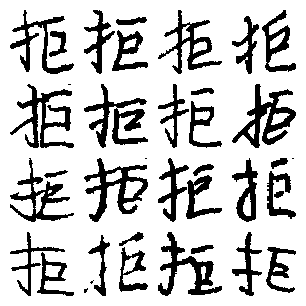 拒拒拒拒
拒拒拒拒
拒拒拒拒
拒拒拒拒